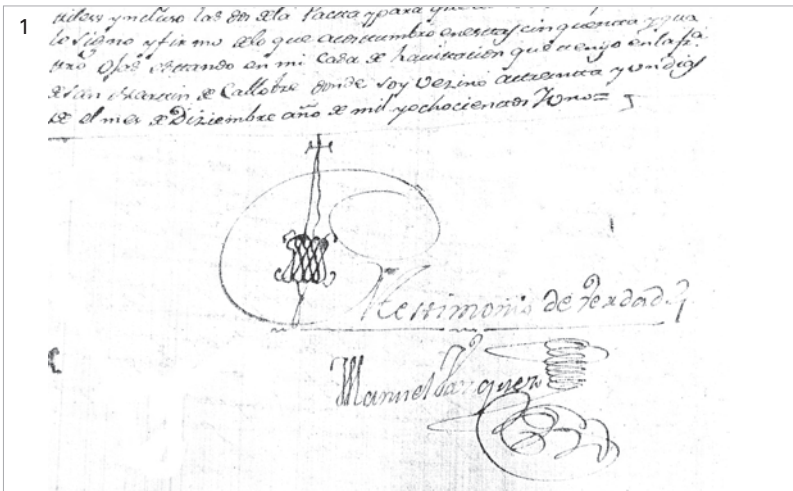 1
y ncluso las dos de la Vacta y para que
lo signo y firmo de lo que acostumbro en estas cinquenta y qua
tro ojas estando en mi Casa de havitación que tengo en la fra
de San Martin de Callobre donde soy Vezino a treinta y un dias
de el mes de Diziembre año de mil y ochocientos y uno=
Testimonio de verdad
Manuel Varquero